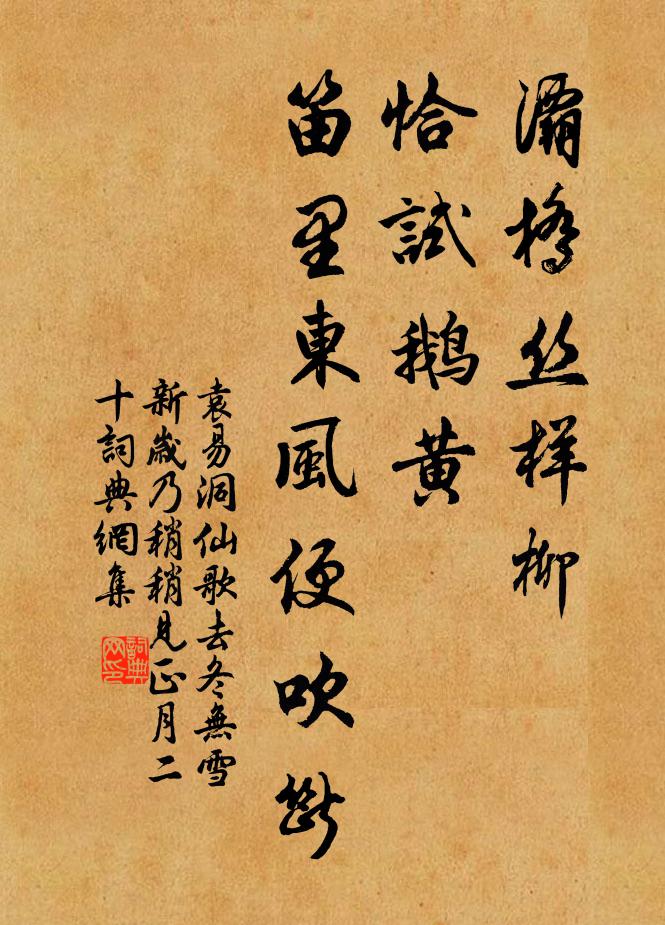 灞橋丝样柳
恰試鹅黄
笛里東風便吹斷
袁易洞仙歌去冬無雪
新歲乃稍稍見正月二
十詞典網集
詞典
网印